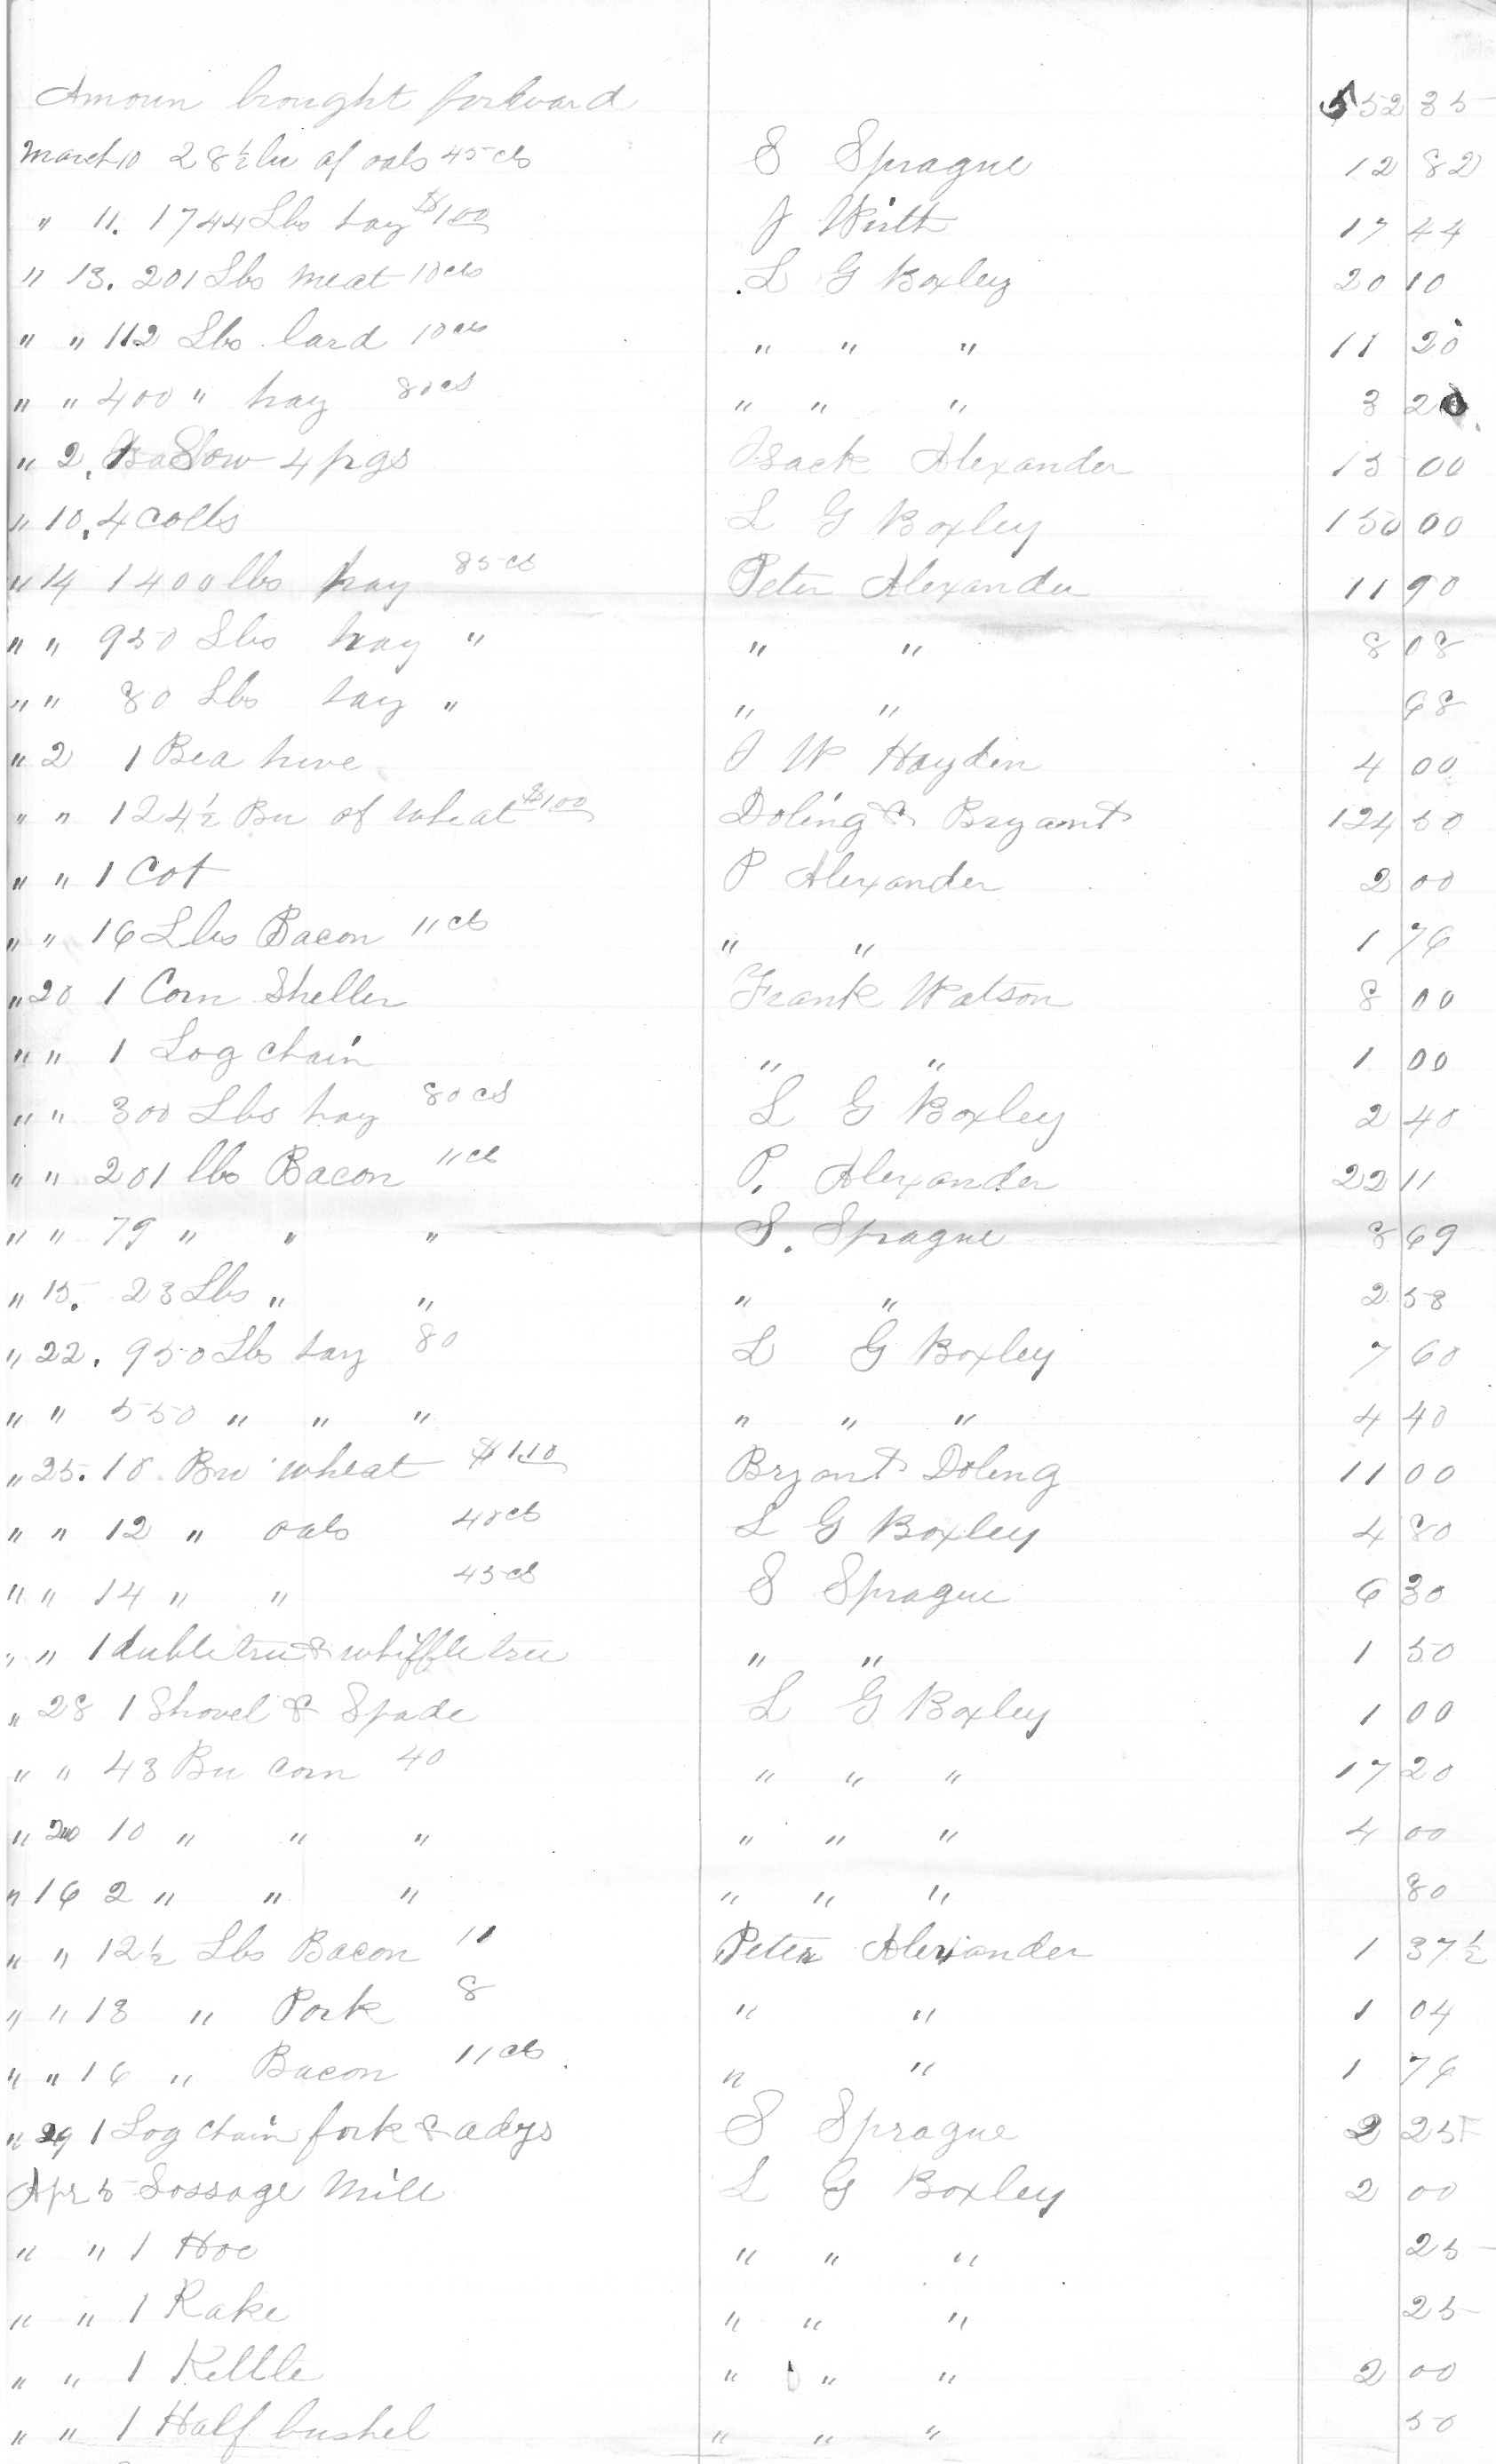 Amoun brought forward 552 35
March 10 28½ bu of oats 45 cts S Sprague 12 82
" 11. 1744 Lbs hay $1.00 J Wirth 17 44
" 13. 201 Lbs meat 10 cts L G Boxley 20 10
" " 112 Lbs lard 10 cts " " " 11 20
" " 400 " hay 80 cts " " " 3 20
" 2, 1 Sow 4 pgs Isack Alexander 15 00
" 10, 4 Colts L G Boxley 150 00
" 14 1400 lbs hay 85 cts Peter Alexander 11 90
" " 950 Lbs hay " " " 8 08
" " 80 Lbs hay " " " 68
" 2 1 Bea hive J W Hayden 4 00
" " 124½ Bu of wheat $1.00 Doling & Bryant 124 50
" " 1 Cot P Alexander 2 00
" " 16 Lbs Bacon 11 cts " " 1 76
" 20 1 Corn Sheller Frank Watson 8 00
" " 1 Log chain " " 1 00
" " 300 Lbs hay 80 cts L G Boxley 2 40
" " 201 lbs Bacon 11 ct P. Alexander 22 11
" " 79 " " " S. Sprague 8 69
" 15. 23 Lbs " " " " 2 53
" 22. 950 Lbs hay 80 L G Boxley 7 60
" " 550 " " " " " " 4 40
" 25. 10 Bu wheat $1.10 Bryant Doling 11 00
" " 12 " oats 40 cts L G Boxley 4 80
" " 14 " " 45 cts S Sprague 6 30
" " 1 dubletree & whiffletree " " 1 50
" 28 1 Shovel & Spade L G Boxley 1 00
" " 43 Bu corn 40 " " " 17 20
" 20 10 " " " " " " 4 00
" 16 2 " " " " " " 80
" " 12½ Lbs Bacon 11 Peter Alexander 1 37½
" " 13 " Pork 8 " " 1 04
" " 16 " Bacon 11 cts " " 1 76
" 29 1 Log chain fork & adys S Sprague 2 25
Apr 5 Sossage Mill L G Boxley 2 00
" " 1 Hoe " " " 25
" " 1 Rake " " " 25
" " 1 Kettle " " " 2 00
" " 1 Half bushel " " " 50